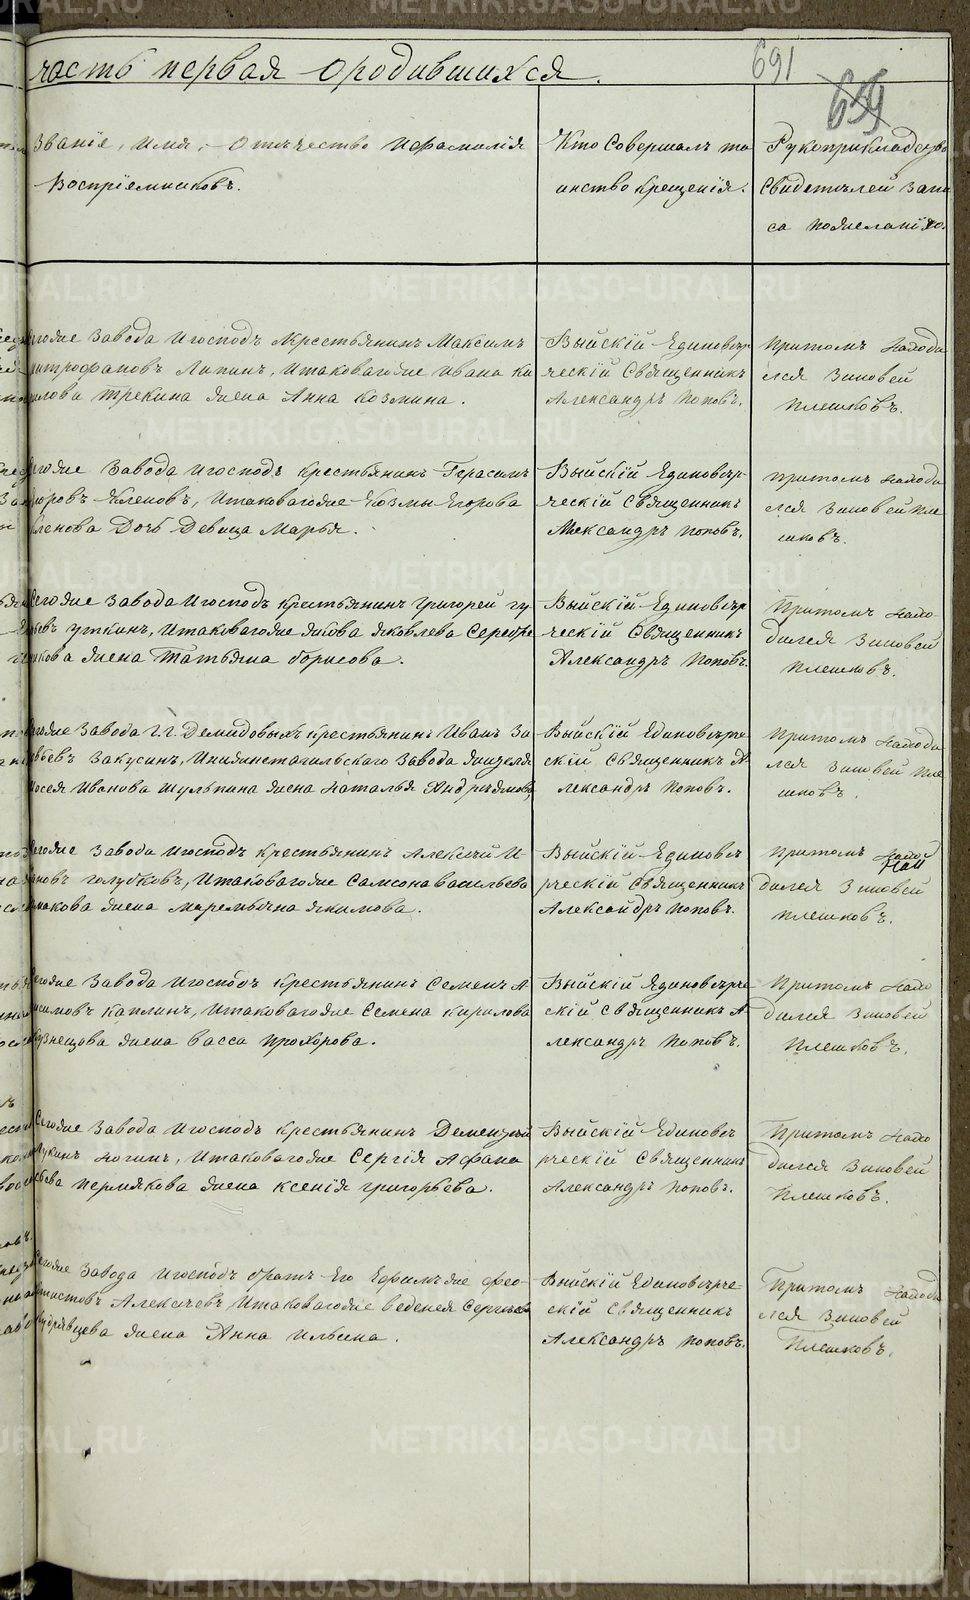 часть первая о родившихся.
691
659
Званіе, имя, отчество и фамилія
воспріемниковъ.
Кто совершалъ та
инство крещенія.
Рукоприкладство
свидетелей запи
са по желанію.
тогоже завода и господъ крестьянинъ Максимъ
митрофановъ Лапинъ, и таковагоже ивана ки
рилова Трекина жена Анна козмина.
Выйскій Единовѣр
ческій Священникъ
Александръ Поповъ.
притомъ находи
лся Зиновей
плешковъ.
тогоже завода и господъ крестьянинъ Герасимъ
Егоровъ Кленовъ, и таковагоже Козмы Егорова
Кленова дочь девица Марья.
Выйскій Единовѣр
ческій Священникъ
Александръ поповъ.
притомъ находи
лся Зиновей пле
шковъ.
тогоже завода и господъ крестьянинъ григорей гу
рьевъ уткинъ, и таковагоже якова яковлева Серебре
никова жена Татьяна борисова.
Выйскій Единовѣр
ческій Священникъ
Александръ поповъ.
Притомъ нахо
дился Зиновей
плешковъ.
тогоже завода г.г. Демидовыхъ крестьянинъ Иванъ За
Закусинъ, и нижнетагильскаго завода жителя
Мосея Иванова Шульпина жена Наталья Андреянова,
Выйскій Единовѣрче
скій Священникъ А
лександръ поповъ.
притомъ находи
лся Зиновей пле
шковъ.
тогоже завода и господъ крестьянинъ Алексей И
вановъ голубковъ, и таковагоже Самсона васильева
жена маремьяна якимова.
Выйскій Единовѣ
рческій Священникъ
Александръ поповъ.
притомъ нахо
дился Зиновей
плешковъ.
тогоже завода и господъ крестьянинъ Семенъ А
нисимовъ каплинъ, и таковагоже Семена кирилова
кузнецова жена васса прохорова.
Выйскій Единовѣрче
скій Священникъ А
лександръ поповъ.
Притомъ нахо
дился Зиновей
плешковъ.
тогоже завода и господъ крестьянинъ Дементей
лукинъ ногинъ, и таковагоже Сергія Афана
сьева пермякова жена ксенія григорьева.
Выйскій Единовѣ
рческій Священникъ
Александръ поповъ.
Притомъ нахо
дился Зиновей
Плешковъ.
тогоже завода и господъ братъ Его Ефимъ же фео
Алексеевъ и таковагоже веденея Сергеева
кудрявцева жена Анна ильина.
Выйскій Единовѣрче
скій священникъ
Александръ поповъ.
Притомъ находи
лся Зиновей
Плешковъ.
METRIKI.GASO-URAL.RU